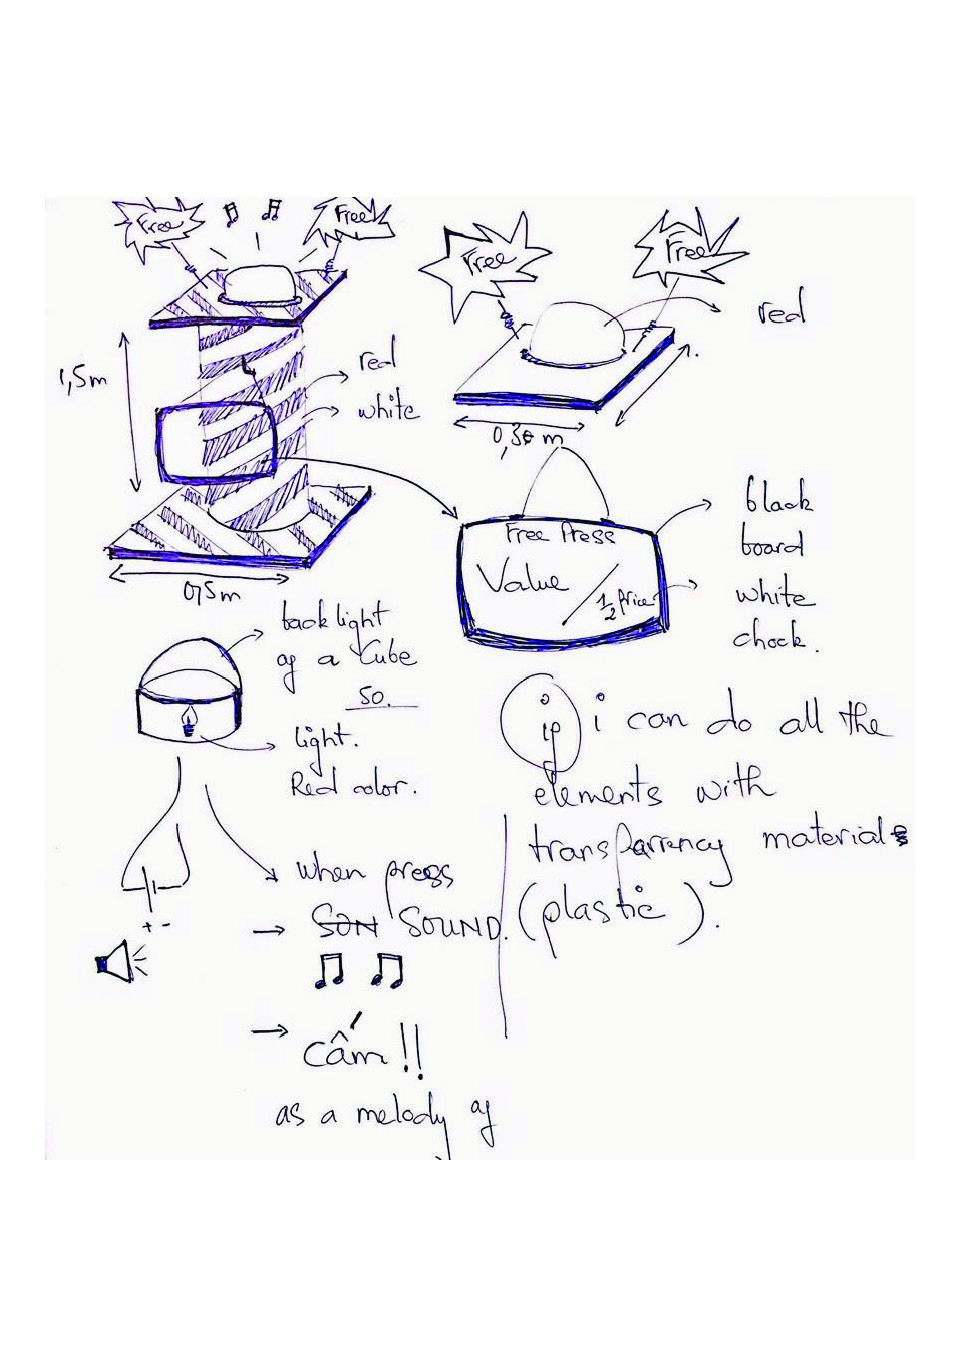 Free
Free
1,5m
red
white
0,5m
Free
Free
red
0,30 m
Free Press
Value
1/2 price
black
board
white
chock.
back light
of a Cube
50.
light.
Red color.
when press
→ SON SOUND.
→ Cấm !!
as a melody of
if i can do all the
elements with
transparrency materials
(plastic).
+ -